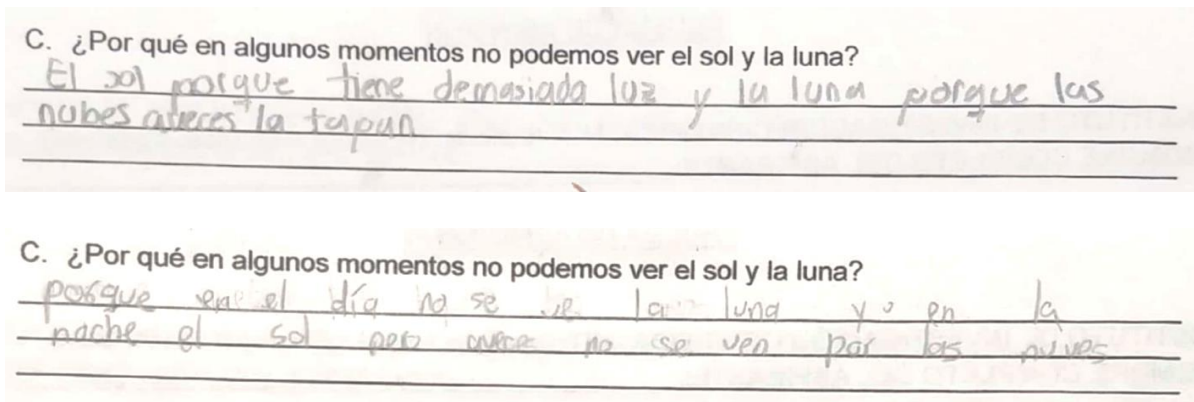 C. ¿Por qué en algunos momentos no podemos ver el sol y la luna?
El sol porque tiene demasiada luz y la luna porque las
nubes aveces la tapan
C. ¿Por qué en algunos momentos no podemos ver el sol y la luna?
porque en el día no se ve la luna y en la
noche el sol pero avece no se ven por las nuves